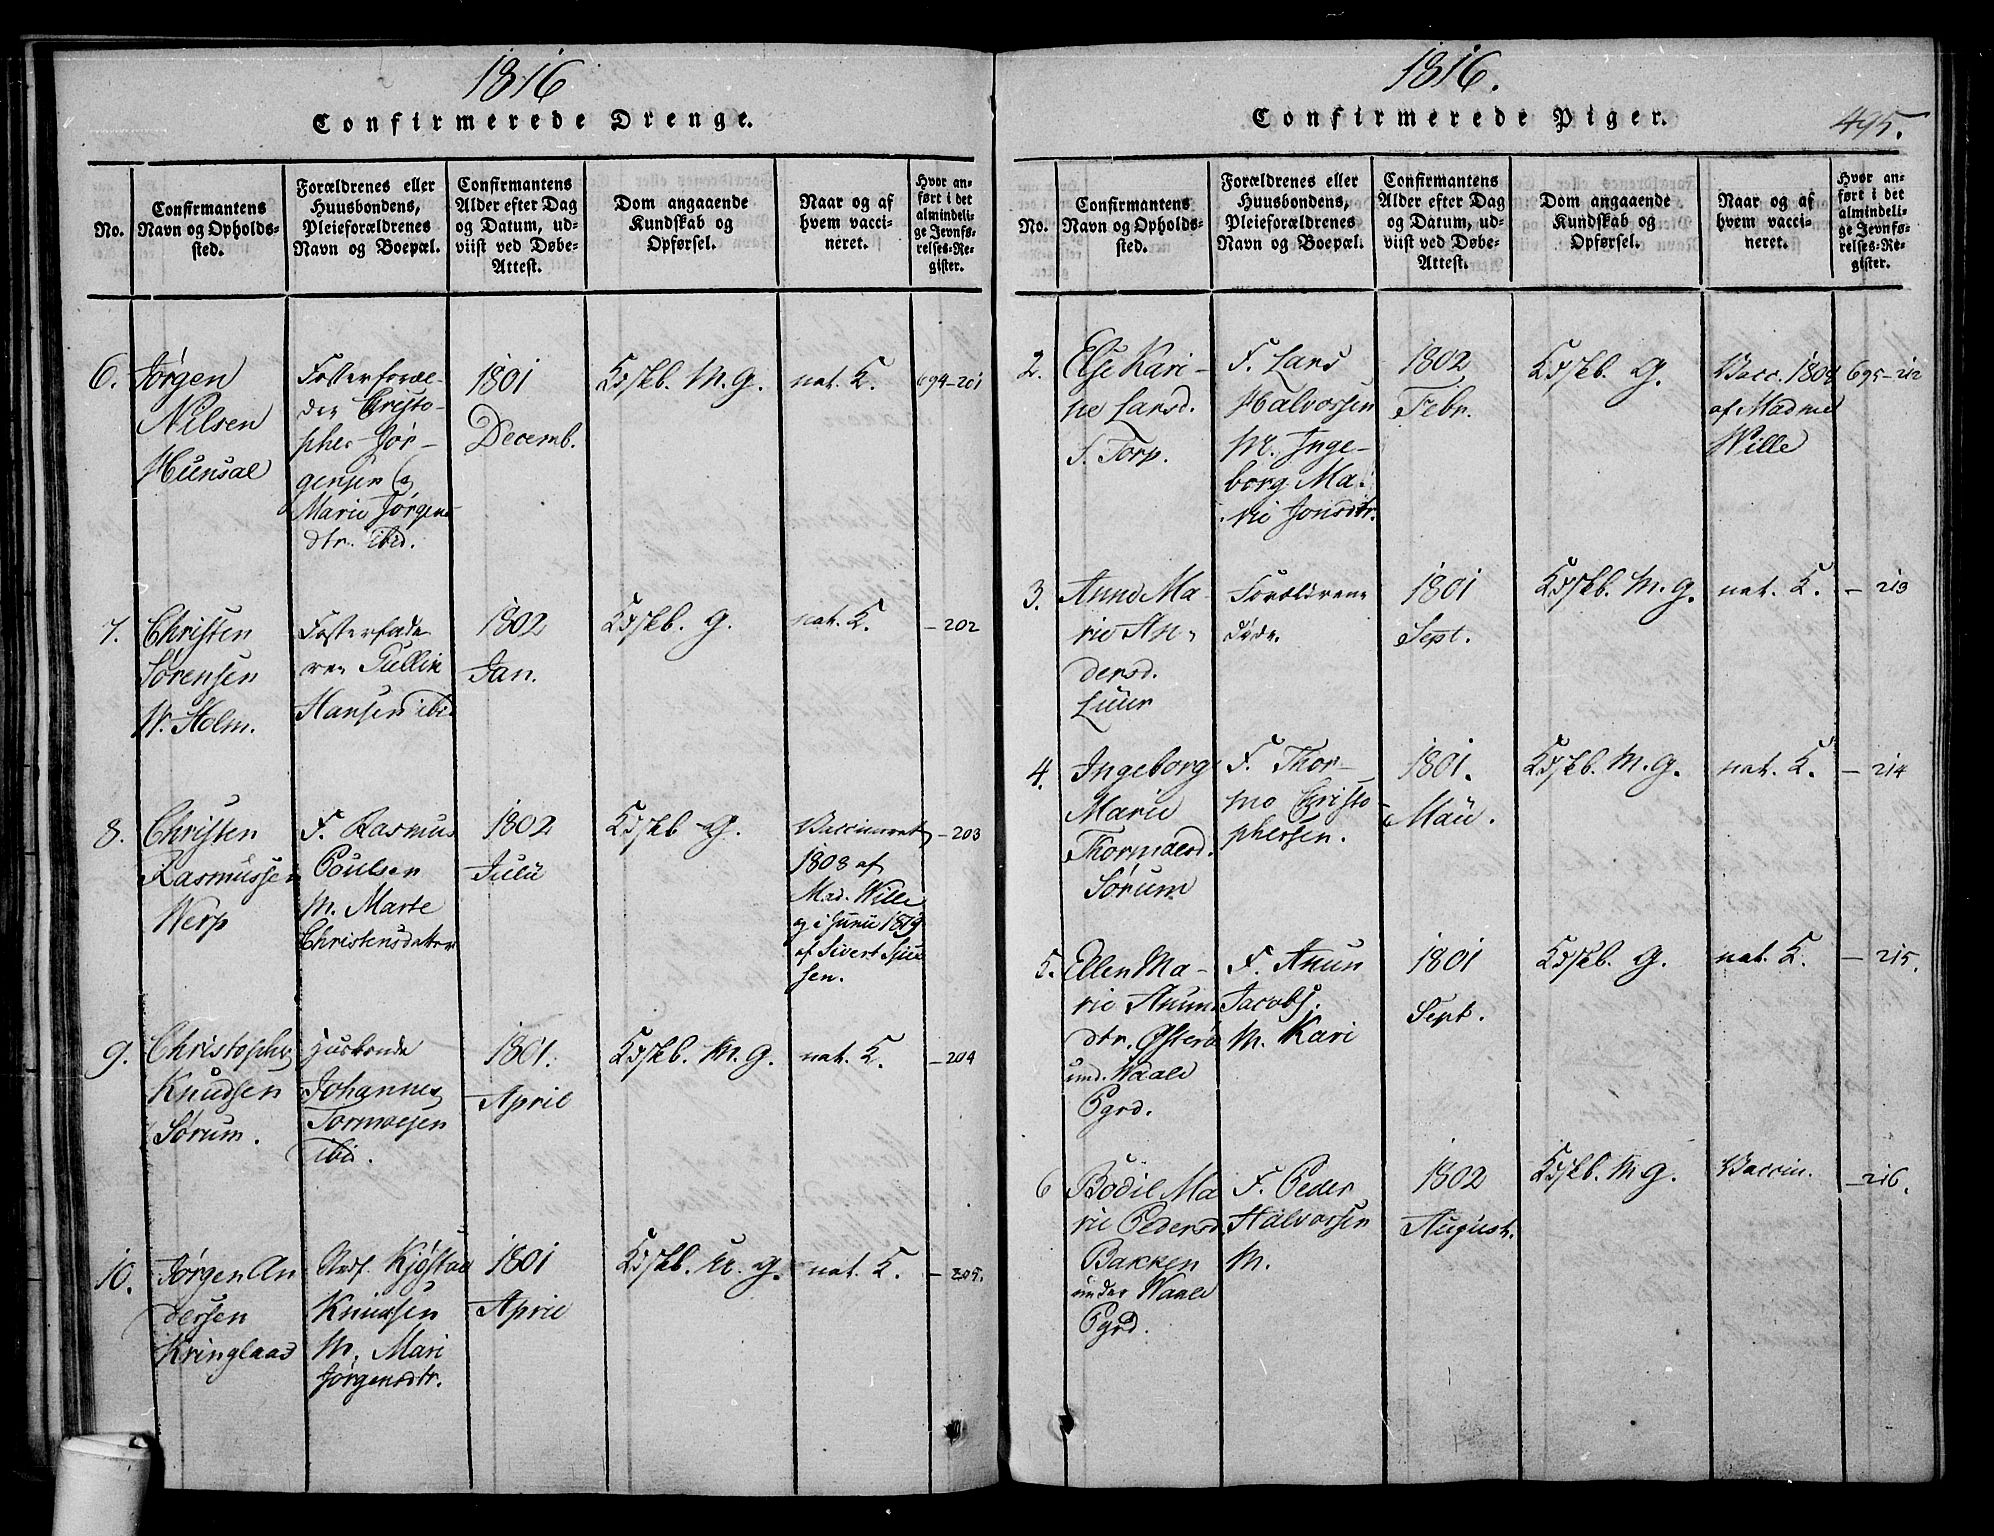 1816
Confirmerede Drenge.
No.
Confirmantens
Navn og Opholds-
sted.
Forældrenes eller
Huusbondens,
Pleieforældrenes
Navn og Boepæl.
Confirmantens
Alder efter Dag
og Datum, ud-
viist ved Døbe-
Attest.
Dom angaaende
Kundskab og
Opførsel.
Naar og af
hvem vacci-
neret.
Hvor an-
ført i det
almindeli-
ge Jevnfø-
relses-Re-
gister.
6.
Jørgen
Nilsen
Hunsal
Fosterforæl-
dre Christo-
pher Jør-
gensen
Marie Jørgens
dtr. ibid.
1801
Decemb.
Kdskb. M. G.
nat. K.
694-201
7.
Christen
Sørensen
N. Holm.
Fosterfade-
ren Tullin
Hansen ibid
1802
Jan.
Kdskb. G.
nat. K.
- 202
8.
Christen
Rasmussen
Werp
F. Rasmus
Poulsen
M. Marte
Christensdatter
1802
Julii
Kdskb G.
Vaccineret
1808 af
Mad. Wille
og i Junii 1819
af Sivert
sen.
- 203
9.
Christopher
Knudsen
Sørum.
Husbonde
Johannes
Tormoesen
ibid.
1801.
April
Kdskb. M. G.
nat. K.
- 204
10.
Jørgen An
dersen
Kringlaas
Kjøstad
Knudsen
M. Mari
Jørgensdtr.
1801
April
Kdskb. M. G.
nat. K.
- 205.
1816.
Confirmerede Piger.
495.
No.
Confirmantens
Navn og Opholds-
sted.
Forældrenes eller
Huusbondens,
Pleieforældrenes
Navn og Boepæl.
Confirmantens
Alder efter Dag
og Datum, ud-
viist ved Døbe-
Attest.
Dom angaaende
Kundskab og
Opførsel.
Naar og af
hvem vacci-
neret.
Hvor an-
ført i det
almindeli-
ge Jevnfø-
relses-Re-
gister.
2.
Else Kari-
ne Larsd.
S. Torp.
F. Lars
Halvorsen
M. Inge-
borg Ma-
rie Jonsdtr.
1802
Febr.
Kdskb. G.
Vacc. 1804
af Madme
Wille
695-212
3.
Anne Ma-
rie An-
dersd.
Luur
Forældrene
døde.
1801
Sept.
Kdskb. M. G.
nat. K.
- 213
4.
Ingeborg
Marie
Thormoesd.
Sørum
F. Thor-
mo Christo-
phersen.
1801.
Maii.
Kdskb. M. G.
nat. K.
- 214
5.
Ellen Ma-
rie Anun
dtr. Østerø
und. Waale
Pgrd.
F. Anun
Jacobs.
M. Kari
1801
Sept.
Kdskb. G.
nat. K.
- 215.
6
Bodil Ma
rie Pedersd
Bakken
under Waale
Pgrd.
F. Peder
Halvorsen
M.
1802
August.
Kdskb. M G.
Vaccin.
- 216.